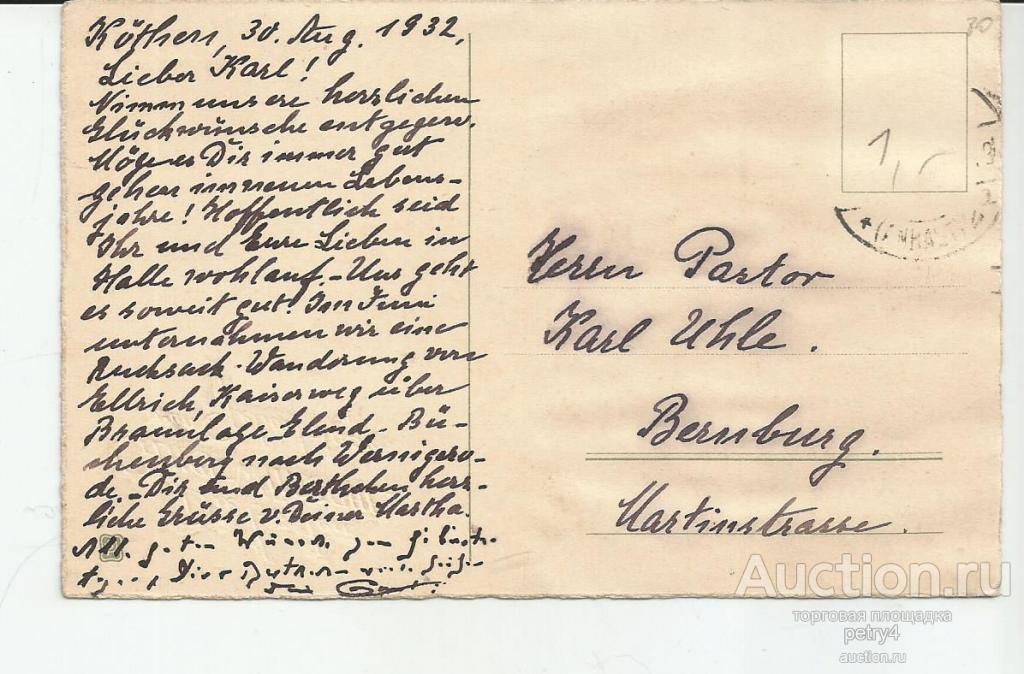 Köthen, 30. Aug. 1932,
Lieber Karl!
Nimm unsere herzlichen
Glückwünsche entgegen.
Möge es Dir immer gut
gehen im neuen Lebens-
jahre! Hoffentlich seid
Ihr und Eure Lieben in
Halle wohlauf. - Uns geht
es soweit gut! Im Juni
unternahmen wir eine
Rucksack-Wanderung von
Ellrich, Kaiserweg über
Braunlage - Elend - Bü-
chenberg nach Wernigero-
de. - Dir und Berthchen herz-
liche Grüsse v. Deiner Martha.
Alle guten Wünsche zum
30
1,-
(ANHALT)
Herrn Pastor
Karl Uhle.
Bernburg.
Martinstrasse.
Auction.ru
торговая площадка
petry4
auction.ru